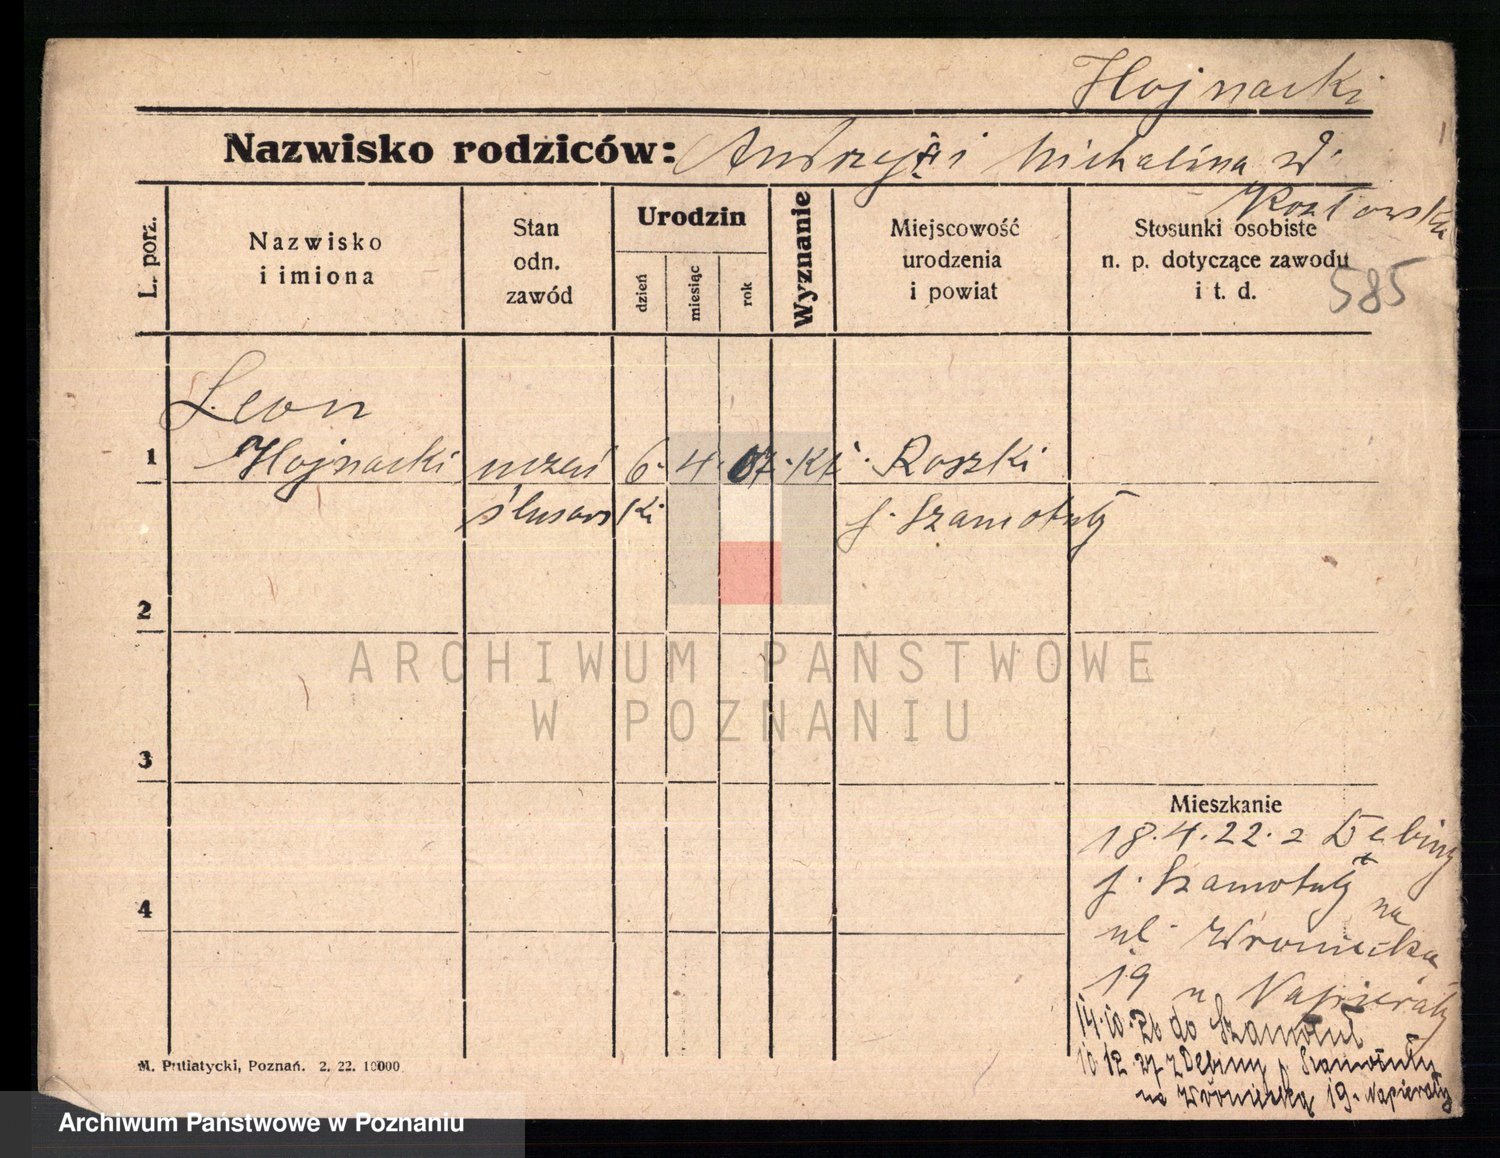 Hojnacki
Nazwisko rodziców: Andrzej i Michalina z d.
Kozłowska
L. porz.
Nazwisko
i imiona
Stan
odn.
zawód
Urodzin
dzień
miesiąc
rok
Wyznanie
Miejscowość
urodzenia
i powiat
Stosunki osobiste
n. p. dotyczące zawodu
i t. d.
585
Leon
1 Hojnacki uczeń 6. 4. 07. kt. Roszki
ślusarski p. Szamotuły
2
ARCHIWUM PAŃSTWOWE
W POZNANIU
3
Mieszkanie
18.4.22. z Dębiny
p. Szamotuły
4
na
ul. Wroniecka
19 u Napierały
14.10.26 do Szamotuł
10 12 27 z Dębiny p. Szamotuły
na Wroniecką 19. Napierały
M. Putiatycki, Poznań. 2. 22. 10000
Archiwum Państwowe w Poznaniu